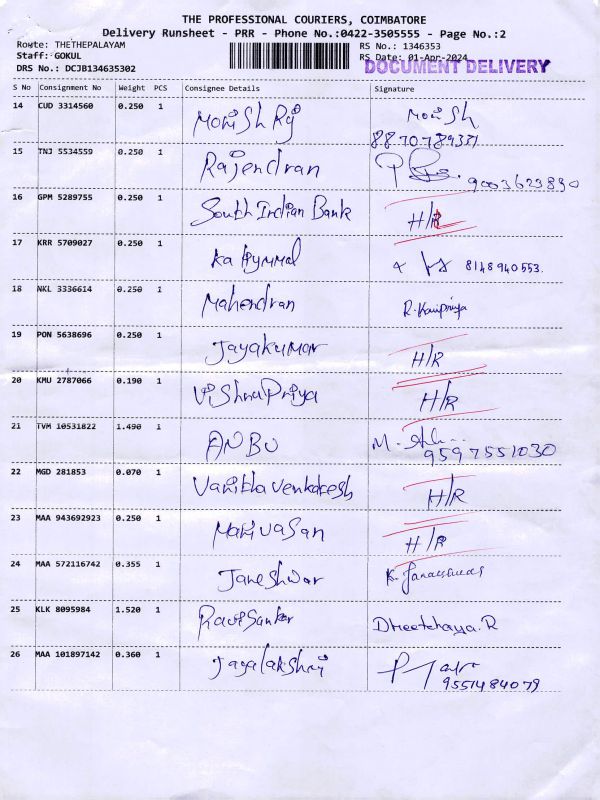 THE PROFESSIONAL COURIERS, COIMBATORE
Delivery Runsheet - PRR - Phone No.:0422-3505555 - Page No.:2
Route: THETHEPALAYAM
Staff: GOKUL
DRS No.: DCJB134635302
RS No.: 1346353
RS Date: 01-Apr-2024
DOCUMENT DELIVERY
S No Consignment No Weight PCS Consignee Details Signature
14 CUD 3314560 0.250 1 Monish Rj Monish
8870789331
15 TNJ 5534559 0.250 1 Rajendran
9003623890
16 GPM 5289755 0.250 1 South Indian Bank H/R
17 KRR 5709027 0.250 1 8148940553.
18 NKL 3336614 0.250 1 Mahendran
19 PON 5638696 0.250 1 Jayakumar H/R
20 KMU 2787066 0.190 1 VishnuPriya H/R
21 TVM 10531822 1.490 1 ANBU
9597551030
22 MGD 281853 0.070 1 Vanitha Venkatesh H/R
23 MAA 943692923 0.250 1 Marivasan H/R
24 MAA 572116742 0.355 1 Janeshwar
25 KLK 8095984 1.520 1 Ravi Sankar
26 MAA 101897142 0.360 1 Jayalakshmi
9551484079